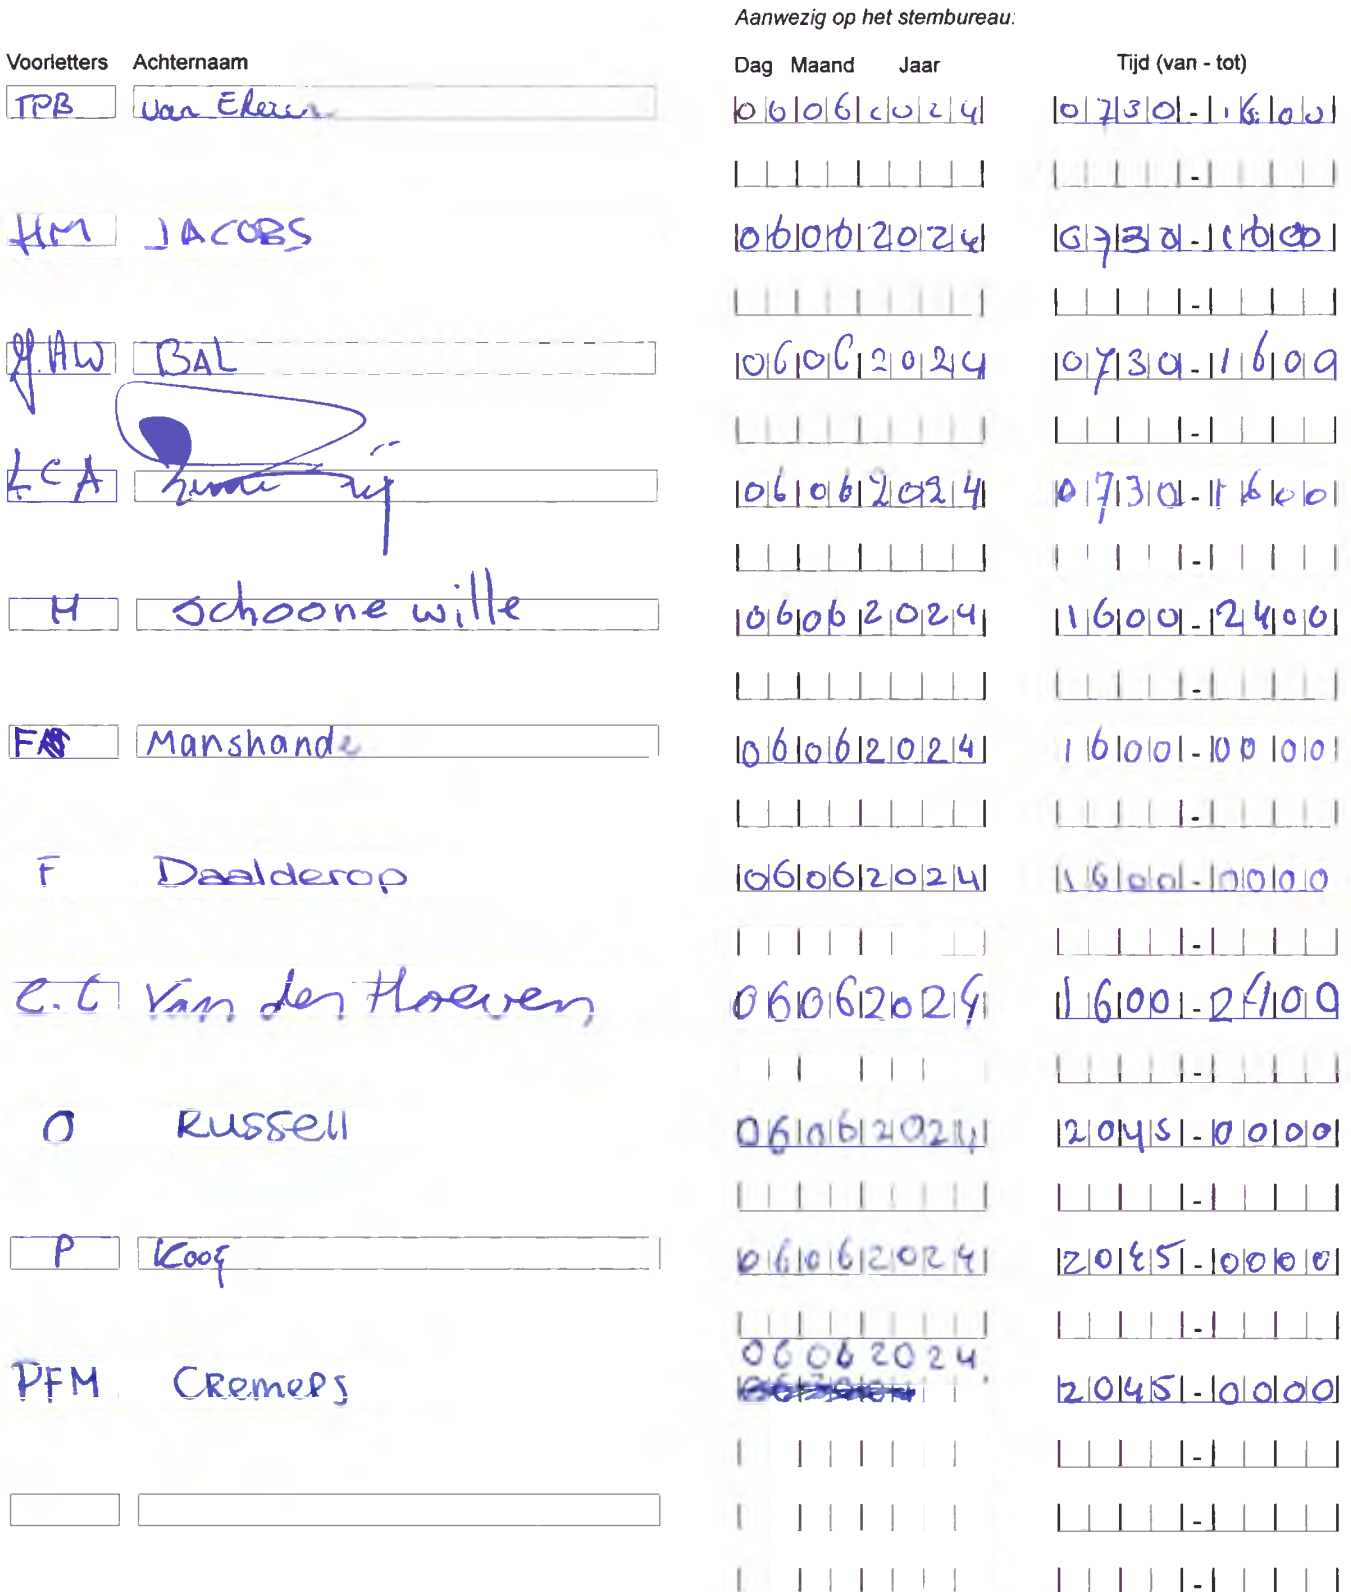 Aanwezig op het stembureau:
Voorletters Achternaam Dag Maand Jaar Tijd (van - tot)
TPB van 06 06 2024 0730 - 1600
HM JACOBS 06 06 2024 0730 - 1600
J.AW BAL 06 06 2024 0730 - 1600
LCA 06 06 2024 0730 - 1600
H schoone wille 06 06 2024 1600 - 2400
Manshande 06 06 2024 1600 - 0000
F Daalderop 06 06 2024 1600 - 0000
C.C Van der Hoeven 06 06 2024 1600 - 2400
O Russell 06 06 2024 2045 - 0000
P Kooy 06 06 2024 2045 - 0000
06 06 2024
PFM Cremers 2045 - 0000